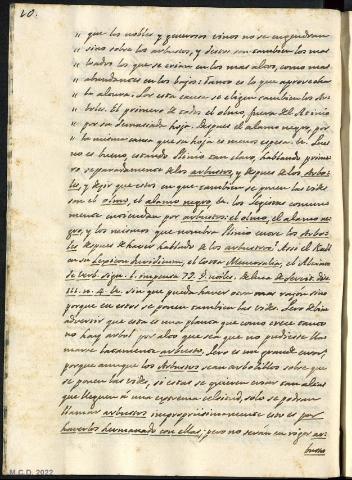 20.
" que los nobles y generosos vinos no se engendran
" sino sobre los arbustos, y destos son tambien los mas
" loados los que se crian en los mas altos, como mas
" abundantes en los bajos: tanto es lo que aprovecha
" la altura. Por esta causa se eligen tambien los Ar-
" boles. El primero de todos el olmo, fuera del Atinio
" por su demasiada hoja. Despues el alamo negro, por
" la misma causa que su hoja es menos espesa &c. Pues
no es bueno, estando Plinio tan claro, hablando prime-
ro separadamente de los arbustos, y despues de los Arbo-
les, y decir que estos en que tambien se ponen las vides
son el olmo, el alamo negro &c. los Legistas comun-
mente entiendan por arbustos: el olmo, el alamo ne-
gro, y los mismos que nombra Plinio entre los Arbo-
les despues de haver hablado de los arbustos? Assi el
en su Lexicon Juridicum, el Costa Memorabilia, el
de verb. sign. l.
III. n. 4. &c. sin que pueda haver otra mas razon sino
porque en estos se ponen tambien las vides. Pero deben
advertir que esta es una planta que como crece tanto
no hay arbol por alto que sea que no pudiesse lla-
marse baxamente arbusto. Pero es un grande error,
porque aunque los Arbustos sean arbolillos sobre que
se ponen las vides, si estas se quieren criar tan altas
que lleguen à una extrema celsitud, solo se podran
llamar arbustos impropriissimamente esto es por
haverlos hermanado con ellas; pero no seràn en rigor ar-
bustos
M.C.D. 2022